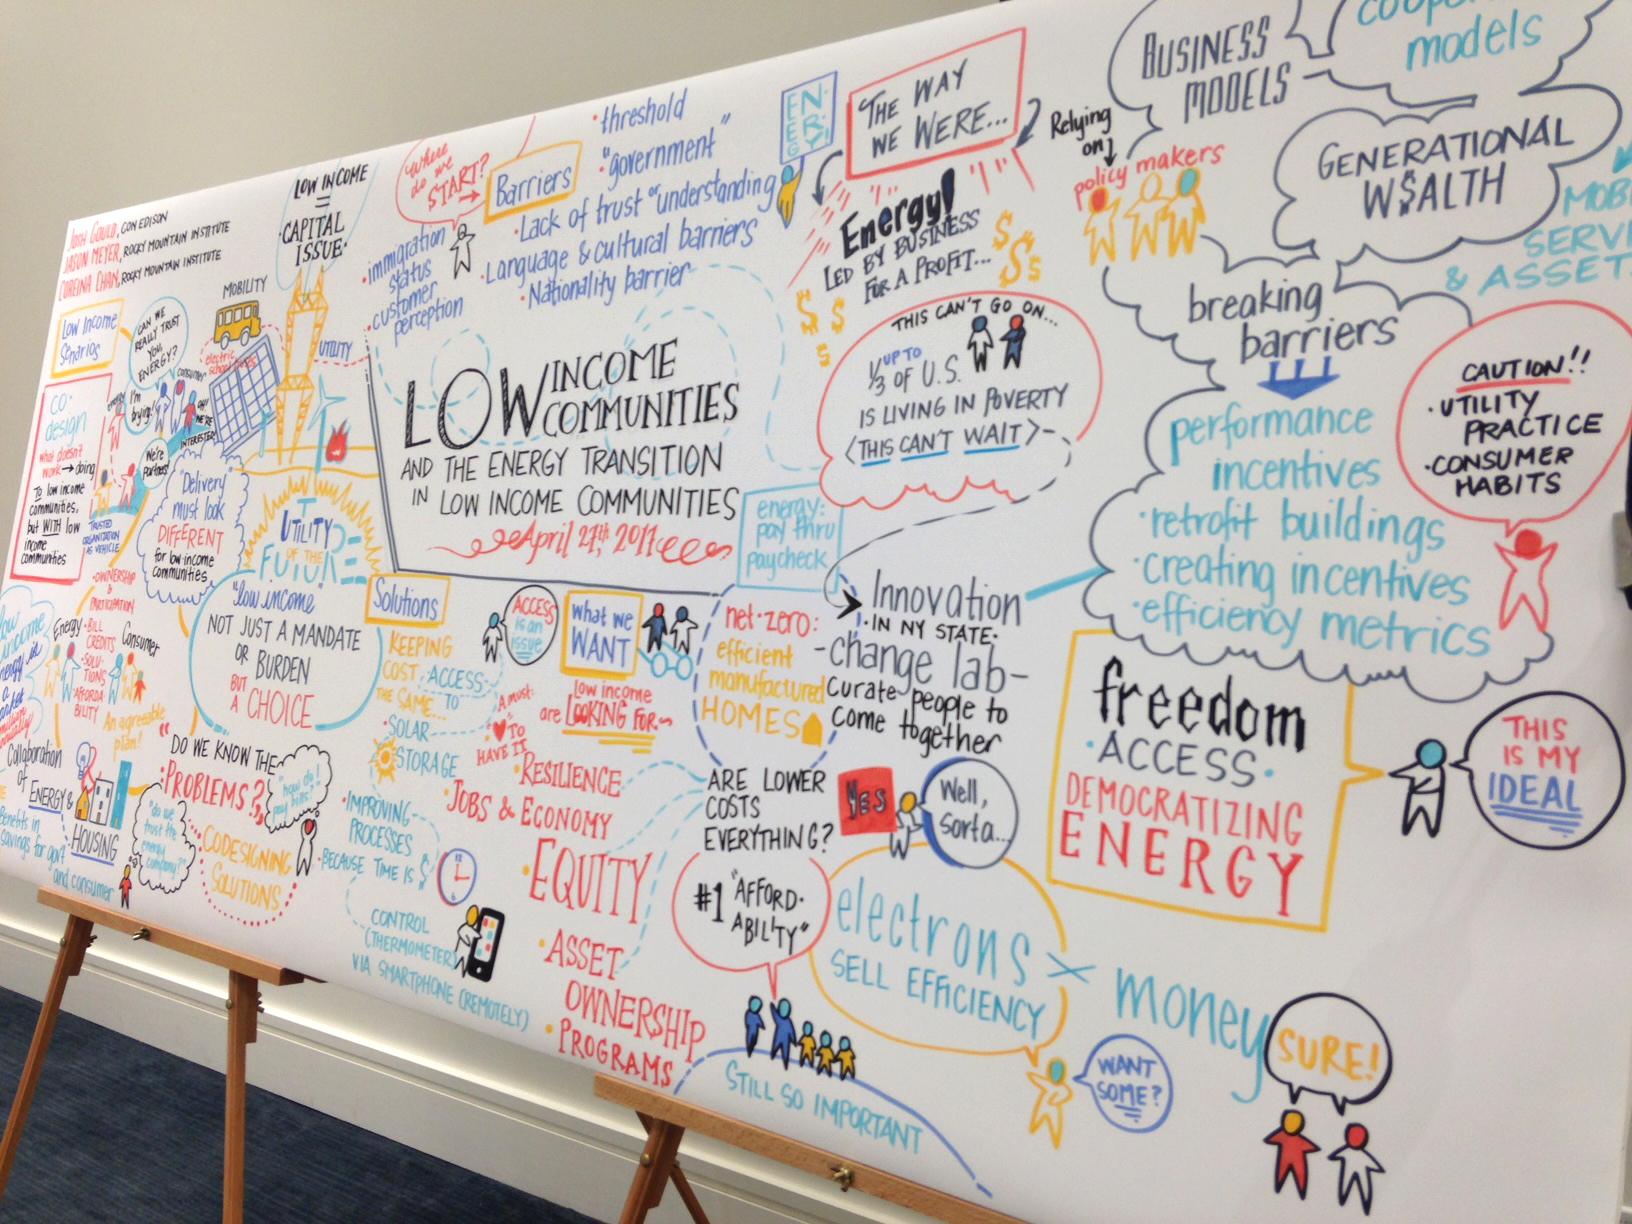 JOSH GOULD, CON EDISON
JASON MEYER, ROCKY MOUNTAIN INSTITUTE
COREINA CHAN, ROCKY MOUNTAIN INSTITUTE
Low Income
Senarios
CAN WE
REALLY TRUST
YOU,
ENERGY?
consumer
I'm
trying!
WE'RE
INTERESTED!
We're
Partners!
CO-
design
what doesn't
work → doing
TO low income
communities,
but WITH low
income
communities
TRUSTED
ORGANIZATION
AS VEHICLE
MOBILITY
electric
school buses
UTILITY
LOW INCOME
=
CAPITAL
ISSUE
Where
do we
START?
Barriers
• threshold
• "government"
• Lack of trust or understanding
• Language & cultural barriers
• Nationality barrier
• immigration
status
• customer
perception
ENERGY
"THE WAY
WE WERE...
Energy!
LED BY BUSINESS
FOR A PROFIT...
$ $ $ $ $ $
Relying
on
policy makers
BUSINESS
MODELS
models
GENERATIONAL
W$ALTH
& ASSET
breaking
barriers
performance
incentives
• retrofit buildings
• creating incentives
• efficiency metrics
CAUTION!!
• UTILITY
PRACTICE
• CONSUMER
HABITS
THIS CAN'T GO ON...
UP TO
1/3 OF U.S.
IS LIVING IN POVERTY
<THIS CAN'T WAIT>
LOW INCOME
COMMUNITIES
AND THE ENERGY TRANSITION
IN LOW INCOME COMMUNITIES
April 27th, 2017
energy:
pay thru
paycheck
Delivery
must look
DIFFERENT
for low-income
communities
UTILITY
OF THE
FUTURE
"low income"
NOT JUST A MANDATE
OR BURDEN
BUT
A CHOICE
• OWNERSHIP
&
PARTICIPATION
• BILL
CREDITS
• SOLU-
TIONS
• AFFORDA-
BILITY
Energy
Consumer
An agreeable
plan!
Collaboration
of
ENERGY &
HOUSING
Benefits in
savings for gov't
and consumer
"DO WE KNOW THE
PROBLEMS?"
"how do I
pay bills?"
"do we
trust the
energy
company?"
CODESIGNING
SOLUTIONS
Solutions
KEEPING
COST
THE SAME...
ACCESS
TO
• SOLAR
• STORAGE
ACCESS
is an
issue
• IMPROVING
PROCESSES
BECAUSE TIME IS
CONTROL
(THERMOMETER)
VIA SMARTPHONE (REMOTELY)
what we
WANT
Low income
are LOOKING FOR
A must:
TO
HAVE IT
• RESILIENCE
• JOBS & ECONOMY
• EQUITY
• ASSET
OWNERSHIP
• PROGRAMS
net-zero:
efficient
manufactured
HOMES
Innovation
• IN NY STATE •
-change lab-
curate people to
come together
ARE LOWER
COSTS
EVERYTHING?
YES
Well,
sorta...
#1 "AFFORD-
ABILITY"
STILL SO IMPORTANT
electrons × money
SELL EFFICIENCY
WANT
SOME?
SURE!
freedom
• ACCESS •
DEMOCRATIZING
ENERGY
THIS
IS MY
IDEAL